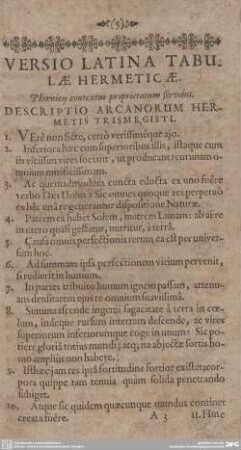 (5)
VERSIO LATINA TABU-
LÆ HERMETICÆ.
Phœnicen contextus proprietatem servans.
DESCRIPTIO ARCANORUM HER-
METIS TRISMEGISTI.
1. Verè non ficte, certò verissiméque ajo.
2. Inferiora hæc cum superioribus illis, istaque cum
iis vicissim vires sociant, ut producant rem unam o-
mnium mirificissimam.
3. Ac quemadmodum cuncta educta ex uno fuêre
verbo DEI Unius: Sic omnes quoque res perpetuò
ex hâc unâ re generantur dispositione Naturæ.
4. Patrem ea habet Solem, matrem Lunam: ab aëre
in utero quasi gestatur, nutritur, à terrâ.
5. Causa omnis perfectionis rerum ea est per univer-
sum hoc.
6. Ad summam ipsa perfectionem virium pervenit,
si redierit in humum.
7. In partes tribuito humum ignem passam, attenu-
ans densitatem ejus re omnium suavissimâ.
8. Summa ascende ingenii sagacitate à terra in cœ-
lum, indeque rursum in terram descende, ac vires
superiorum inferiorumque coge in unum: Sic po-
tiere gloriâ totius mundi; atq; ita abjectæ sortis ho-
mo ampliùs non habere.
9. Isthæc jam res ipsâ fortitudine fortior existet; cor-
pora quippe tam tenuia quàm solida penetrando
subiget.
10. Atque sic quidem quæcunque mundus continet
creata fuêre. A 3 11. Hinc